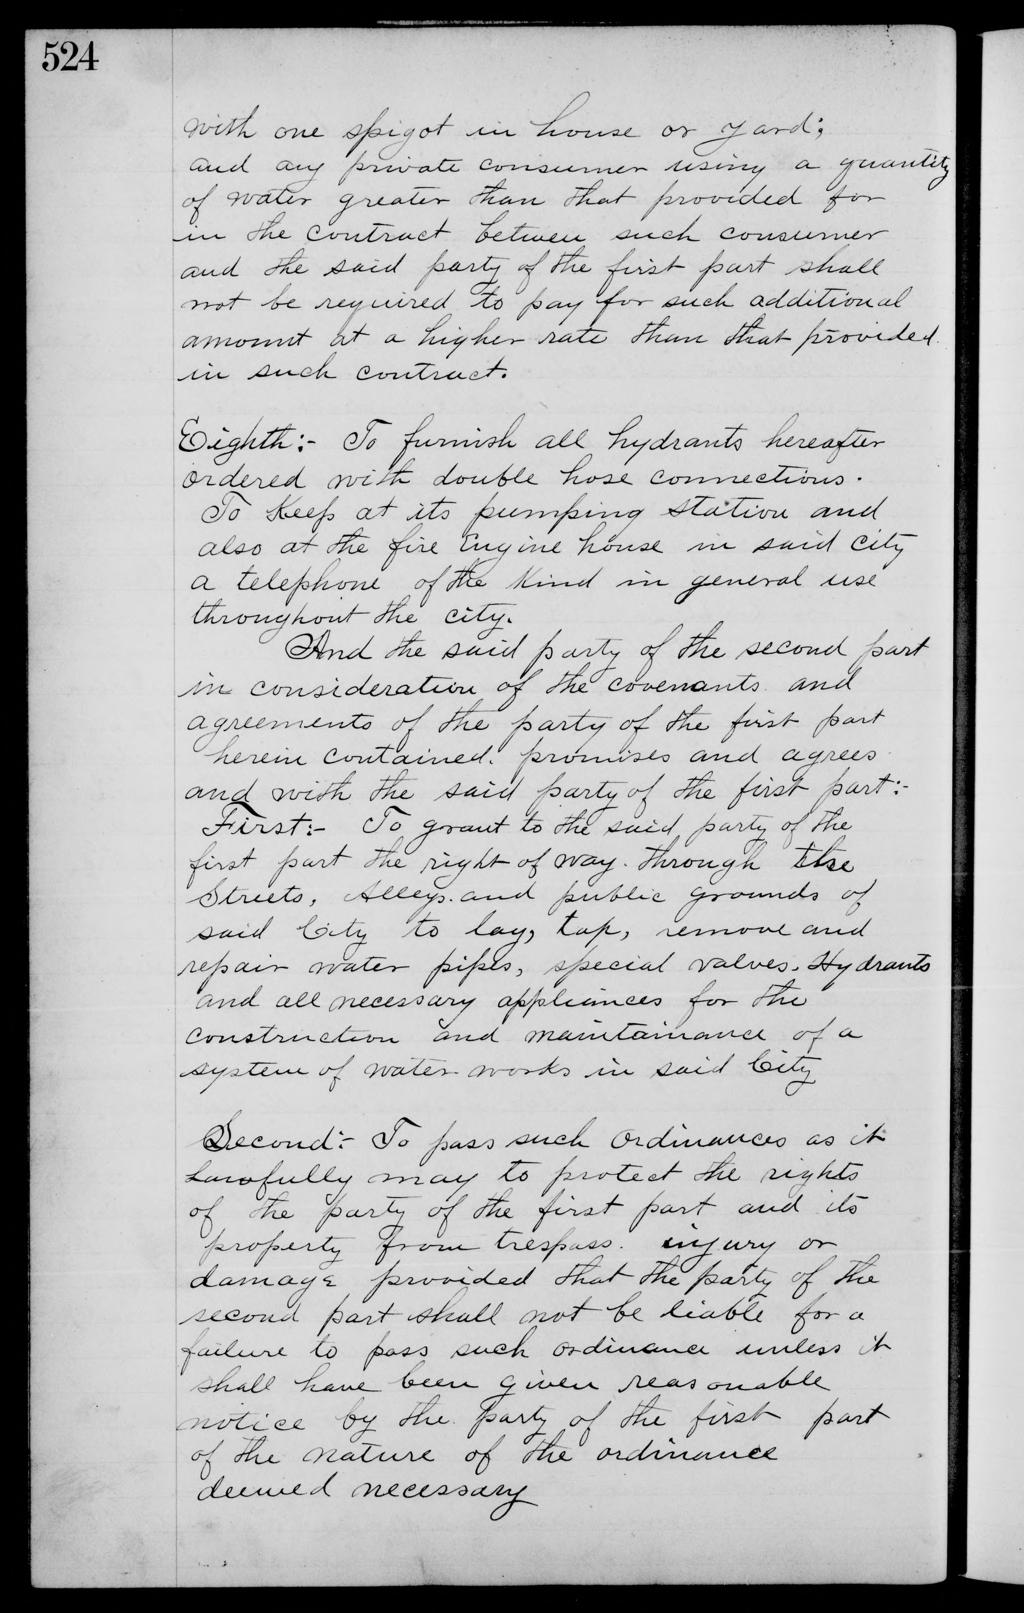 524
with one spigot in house or yard;
and any private consumer using a quantity
of water greater than that provided for
in the contract between such consumer
and the said party of the first part shall
not be required to pay for such additional
amount at a higher rate than that provided
in such contract.
Eighth:- To furnish all hydrants hereafter
ordered with double hose connections.
To Keep at its pumping station and
also at the fire Engine house in said city
a telephone of the Kind in general use
throughout the city.
And the said party of the second part
in consideration of the covenants and
agreements of the party of the first part
herein contained. promises and agrees
and with the said party of the first part:-
First:- To grant to the said party of the
first part the right of way. through the
Streets, Alleys. and public grounds of
said City to lay, tap, remove and
repair water pipes, special valves. Hydrants
and all necessary appliances for the
construction and maintainance of a
system of water works in said City
Second:- To pass such Ordinances as it
Lawfully may to protect the rights
of the party of the first part and its
property from trespass. injury or
damage provided that the party of the
second part shall not be liable for a
failure to pass such ordinance unless it
shall have been given reasonable
notice by the party of the first part
of the nature of the ordinance
deemed necessary